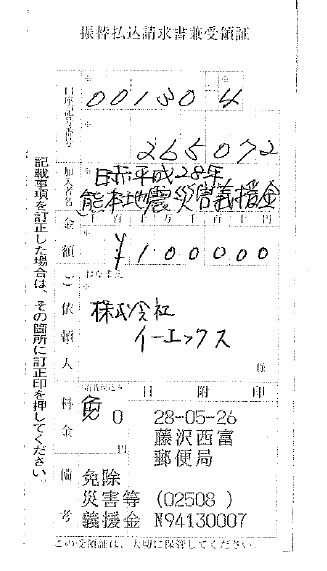 振替払込請求書兼受領証
口座記号番号
00130 4
265072
加入者名
日赤平成28年
熊本地震災害義援金
金額
千 百 十 万 千 百 十 円
¥100000
ご依頼人
おなまえ
株式会社
イーエックス
様
料金
(消費税込み)
免 0
円
日 附 印
28-05-26
藤沢西富
郵便局
備考
免除
災害等 (02508 )
義援金 N94130007
記載事項を訂正した場合は、その箇所に訂正印を押してください。
この受領証は、大切に保管してください。